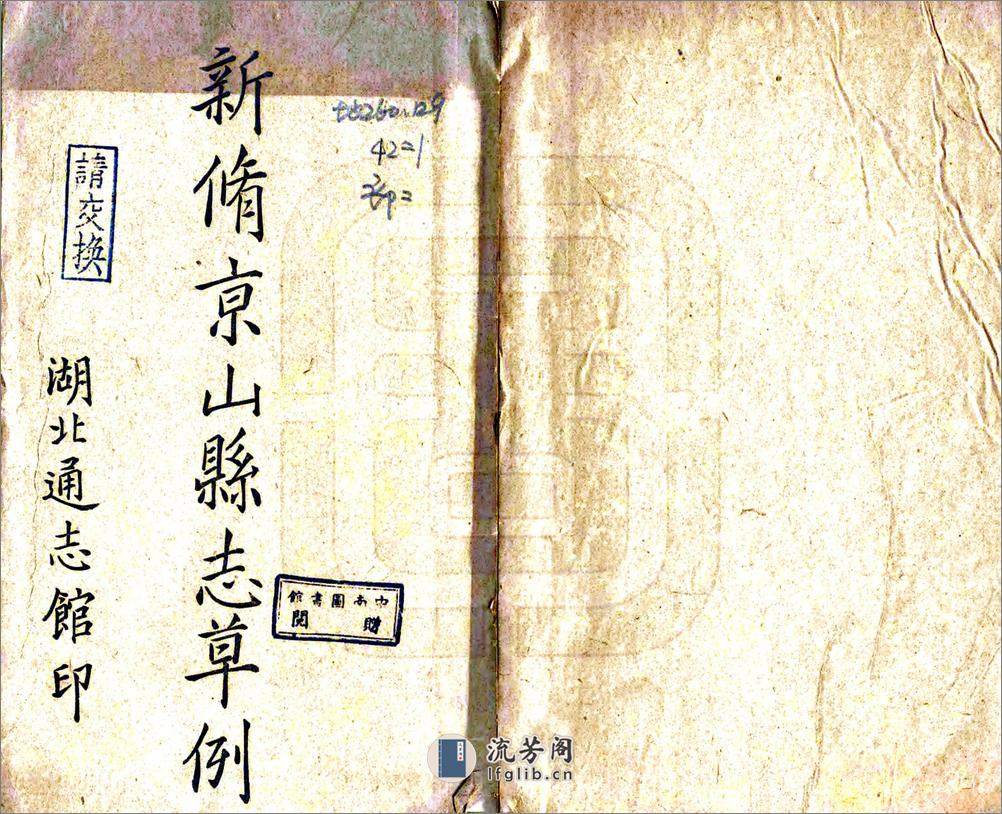 地260.129
42=1
新脩京山縣志草例
請交換
湖北通志館印
中南圖書館
贈閱
流芳阁
lfglib.cn